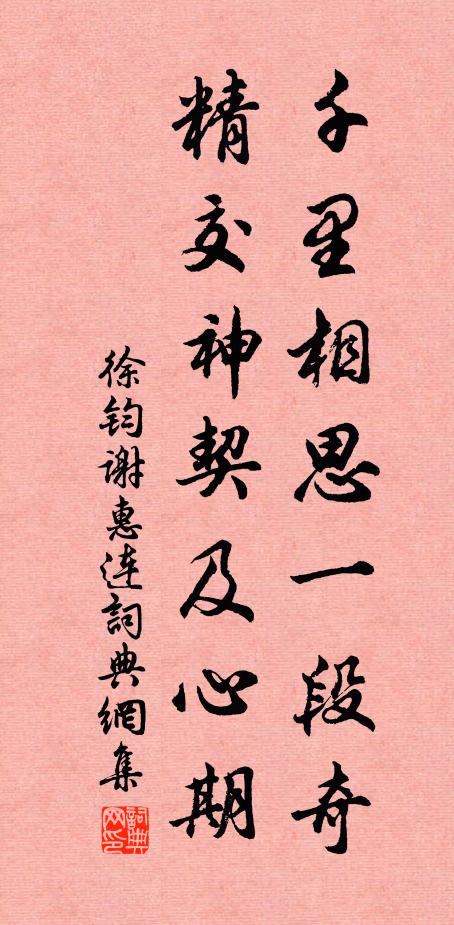 千里相思一段奇
精交神契及心期
徐钧谢惠连詞典網集
詞典网印